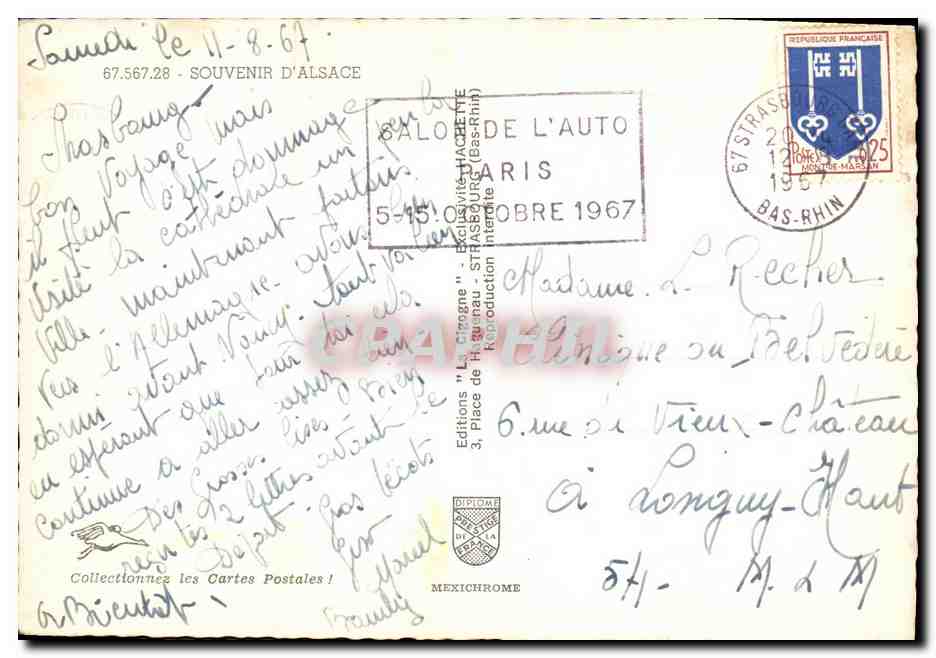 Samedi le 11-8-67.
67.567.28 - SOUVENIR D'ALSACE
Strasbourg
bon voyage mais
il pleut c'est dommage
visité la cathédrale un peu la
ville - maintenant partons
vers l'Allemagne - avons bien
dormi avant Nancy. tout va bien
en espérant que pour toi cela
continue à aller assez bien
Des grosses bises - soyez
reçu tes 2 lettres avant le
Départ - Gros bécots
Marcel
A Bientôt
Collectionnez les Cartes Postales !
Editions "La Cigogne" - Exclusivité HACHETTE
3, Place de Haguenau - STRASBOURG (Bas-Rhin)
Reproduction interdite
DIPLOME
PRESTIGE
DE LA
FRANCE
MEXICHROME
SALON DE L'AUTO
PARIS
5-15 OCTOBRE 1967
67 STRASBOURG
12-8
1967
BAS-RHIN
REPUBLIQUE FRANÇAISE
POSTES 0,25
MONT-DE-MARSAN
Madame L. Recher
Clinique du Belvédère
6. rue du Vieux-Château
à Longwy-Haut
54- M. & M
CPAPHIL